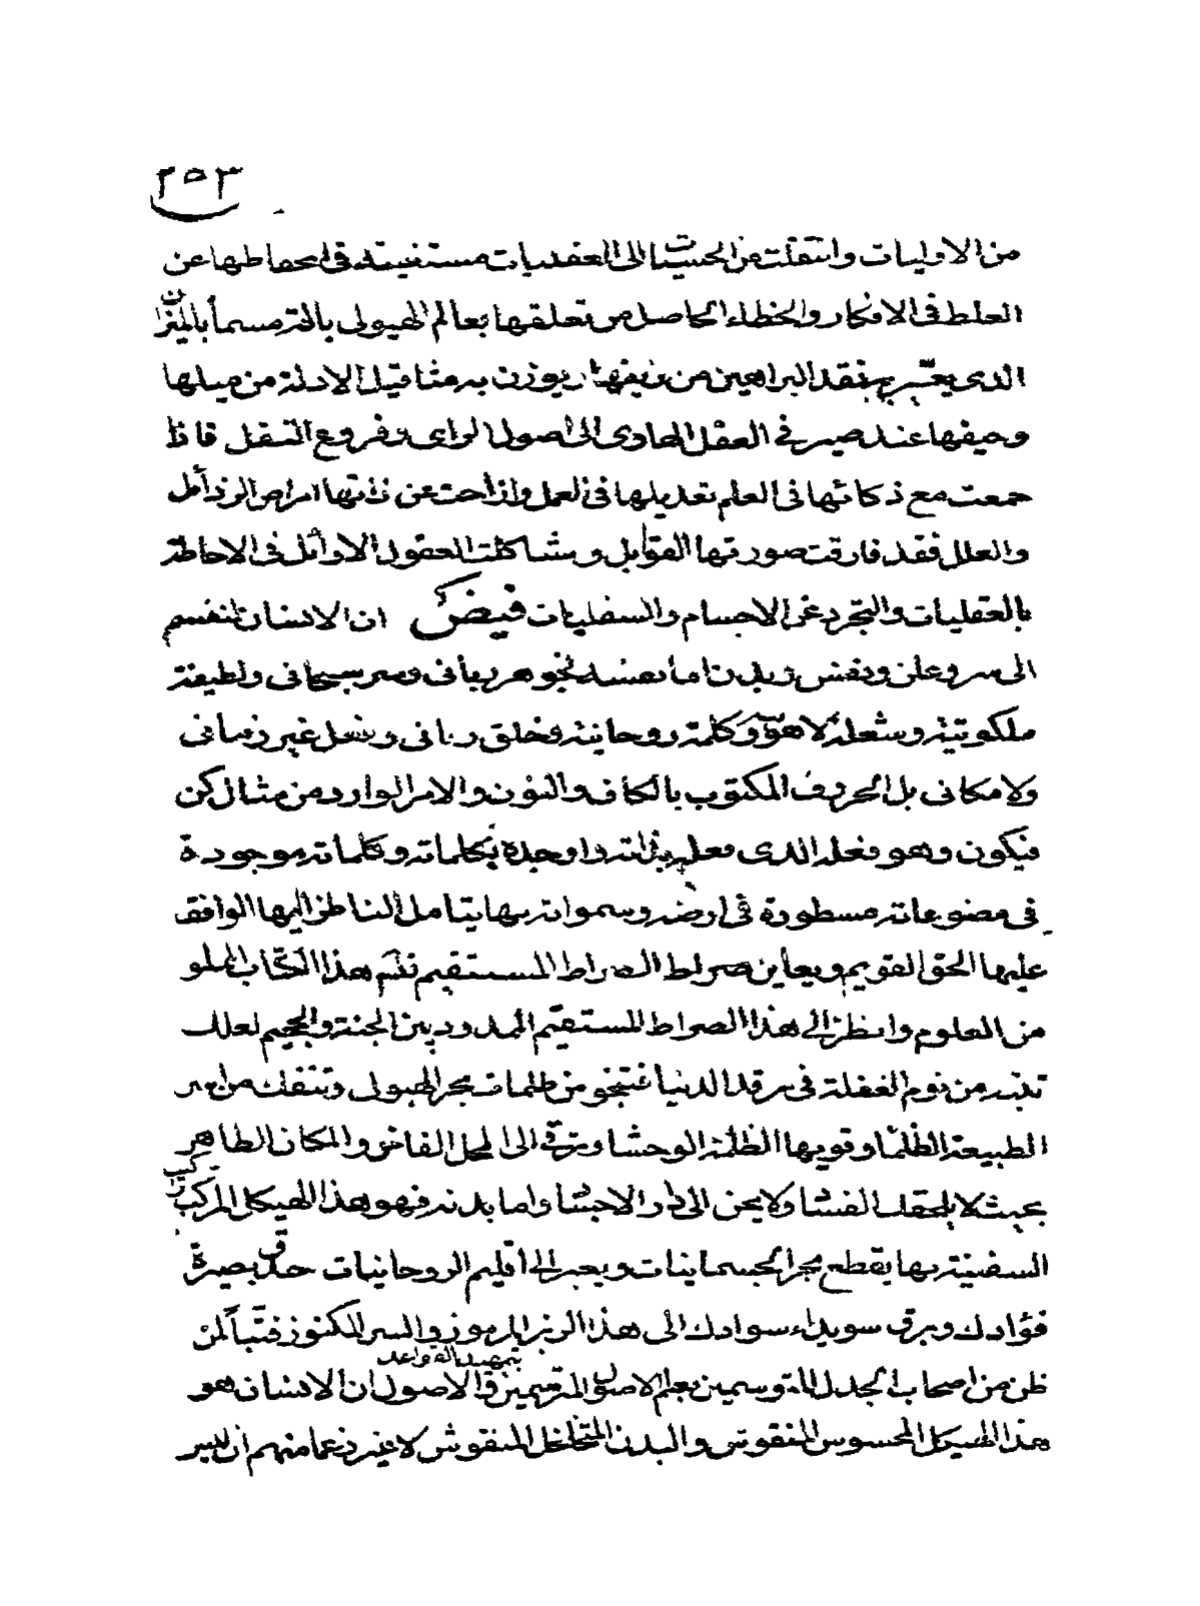 ٢٥٣
من الاوليات وانتقلت من الحسيات الى العقليات مستفيدة فى احتفاظها عن
الغلط فى الافكار والخطاء الحاصل من تعلقها بعالم الهيولى بالة مسماة بالميزان
الذى يعتبر به نقد البراهين من زيفها ويوزن به مثاقيل الادلة من ميلها
وحيفها عند صيرفى العقل الهادى الى اصول الراى وفروع النقل فاذا
جمعت مع ذكائها فى العلم تعديلها فى العمل وازاحت عن ذاتها امراض الرذائل
والعلل فقد فارقت صورتها القوابل وشاكلت العقول الاوائل فى الاحاطة
بالعقليات والتجرد عن الاجسام والسفليات فيض ان الانسان لنقسم
الى سر وعلن ونفس وبدن اما نفسه فجوهر ربانى وسر سبحانى ولطيفة
ملكوتية وشعلة لاهوتية وكلمة روحانية وخلق ربانى وفعل غير زمانى
ولا مكانى بل الحروف المكتوب بالكاف والنون والامر الوارد من مثال كن
فيكون وهو فعله الذى فعله بذاته واوجده بكلماته وكلماته موجودة
فى مصنوعاته مسطورة فى ارضه وسمواته بها يتامل الناظر اليها الواقف
عليها الحق القويم ويعاين صراط الصراط المستقيم هذا الكتاب المملو
من العلوم وانظر الى هذا الصراط المستقيم الممدود بين الجنة والجحيم لعلك
تنتبه من نوم الغفلة فى مرقد الدنيا فتنجو من ظلمات بحر الهيولى وتنفك من اسر
الطبيعة الظلما وقويها الظلمة الوحشا وترقى الى المحل الفاخر والمكان الطاهر
بحيث لا يلحقك الفشا ولا يحن الى دار الاحبشا واما بدنه فهو هذا الهيكل المركب تركيب
السفينة بها يقطع بحر الجسمانيات ويعبر الى اقليم الروحانيات حدق بصيرة
فؤادك وبرق سويداء سوادك الى هذا الرمز المرموز والسر المكنوز فتبا لمن
ظن من اصحاب الجدل المتوسمين بعلم الاصول المترسمين بتمهيد القواعد والاصول ان الانسان هو
هذا الهيكل المحسوس المنقوش والبدن المتخلخل المنفوش لا غير زعما منهم ان ليس